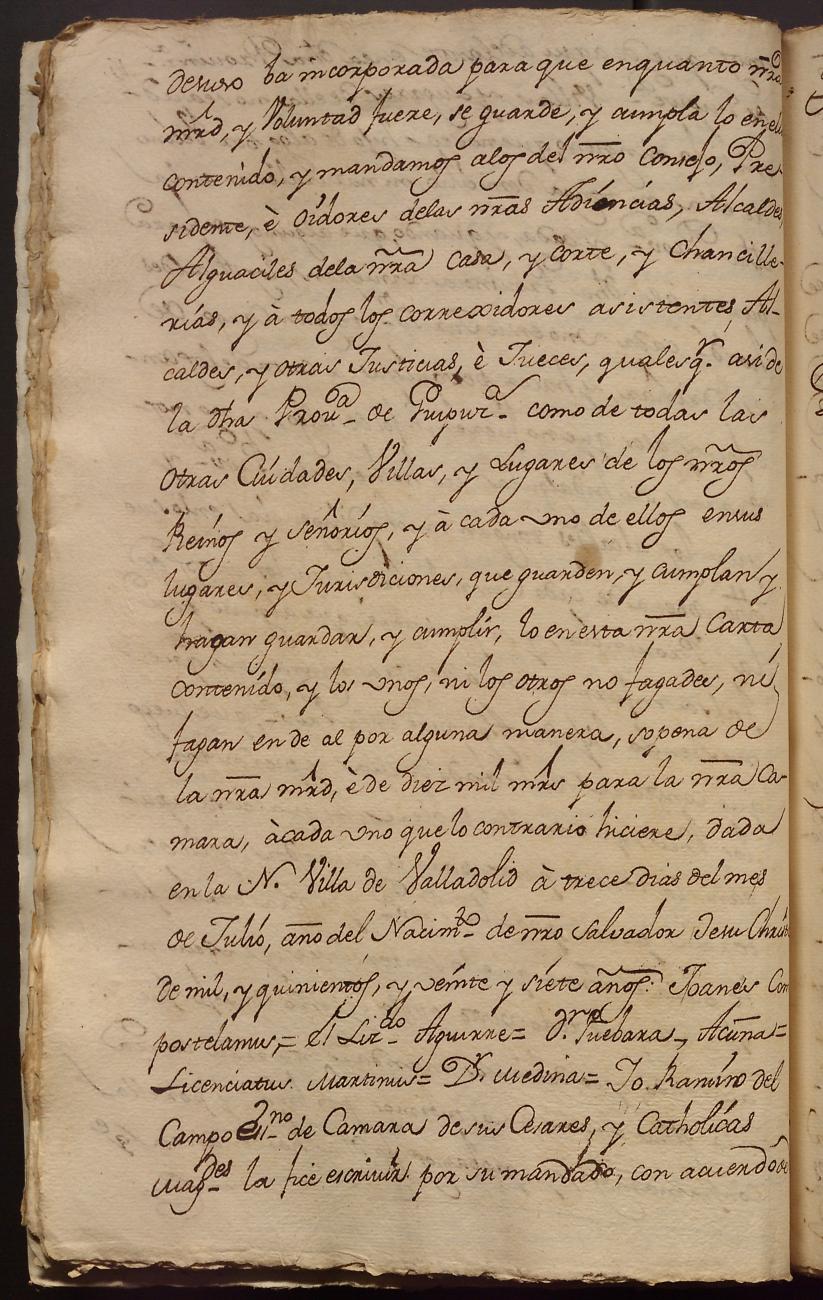 desuso ba incorporada para que enquanto nr̃a
mrd, y Voluntad fuere, se guarde, y cumpla lo enel
contenido, y mandamos alos del nr̃o Consejo, Pre
sidente, è oidores delas nr̃as Adiéncias, Alcaldes,
Alguaciles dela nr̃a casa, y corte, y Chancille-
rias, y à todos los correxidores asistentes, Al-
caldes, y otras Justicias, è Jueces, qualesq.r asi de
la dha Prou.a de Guipuz.a como de todas las
otras Ciudades, Villas, y Lugares de los nr̃os
Reinos y señoríos, y à cada uno de ellos ensus
lugares, y Jurisdiciones, que guarden, y cumplan y
hagan guardar, y cumplir, lo en esta nr̃a Carta
contenido, y los unos, ni los otros no fagades, ni
fagan en de al por alguna manera, sopena de
la nr̃a mrd, è de diez mil mrs para la nr̃a Ca-
mara, àcada uno que lo contrario hiciere, dada
en la N. Villa de Valladolid à trece dias del mes
de Julio, año del Nacim.to de nr̃o Salvador Jesu Christo
de mil, y quinientos, y veinte y siete años: Joanes Com
postelanus,= el Liz.do Aguirre= D.r Guebara_ Acuña=
Licenciatus Martinus= D.r Medina= Jo. Ramiro del
Campo ess.no de Camara de sus Cesares, y Catholicas
Mag.des la fice escrivir por su mandado, con acuerdo de